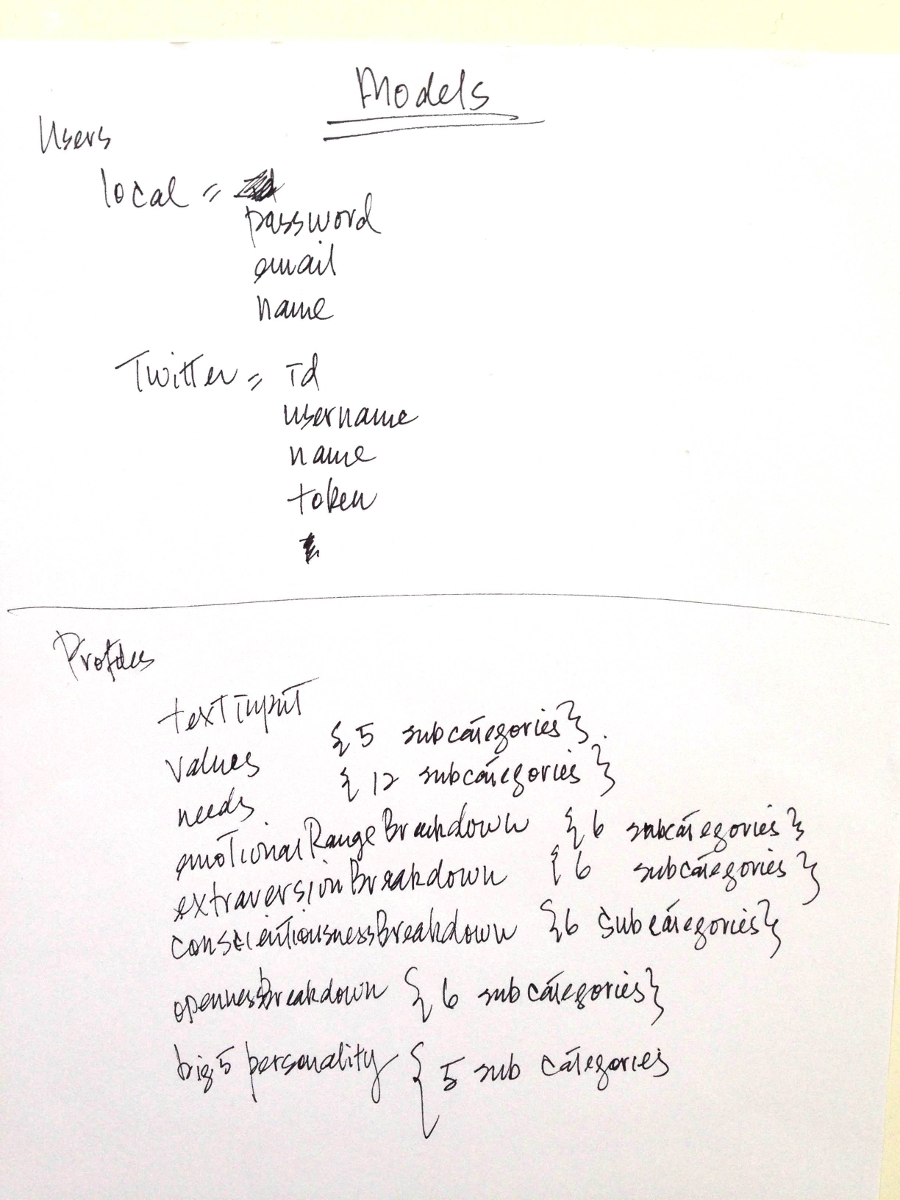 Models
Users
local =
password
email
name
Twitter = id
username
name
token
Profiles
textinput
values {5 subcategories}.
needs {12 subcategories}
emotionalRangeBreakdown {6 subcategories}
extraversionBreakdown {6 subcategories}
conscientiousnessBreakdown {6 subcategories}
opennessBreakdown {6 subcategories}
big5 personality { 5 sub categories